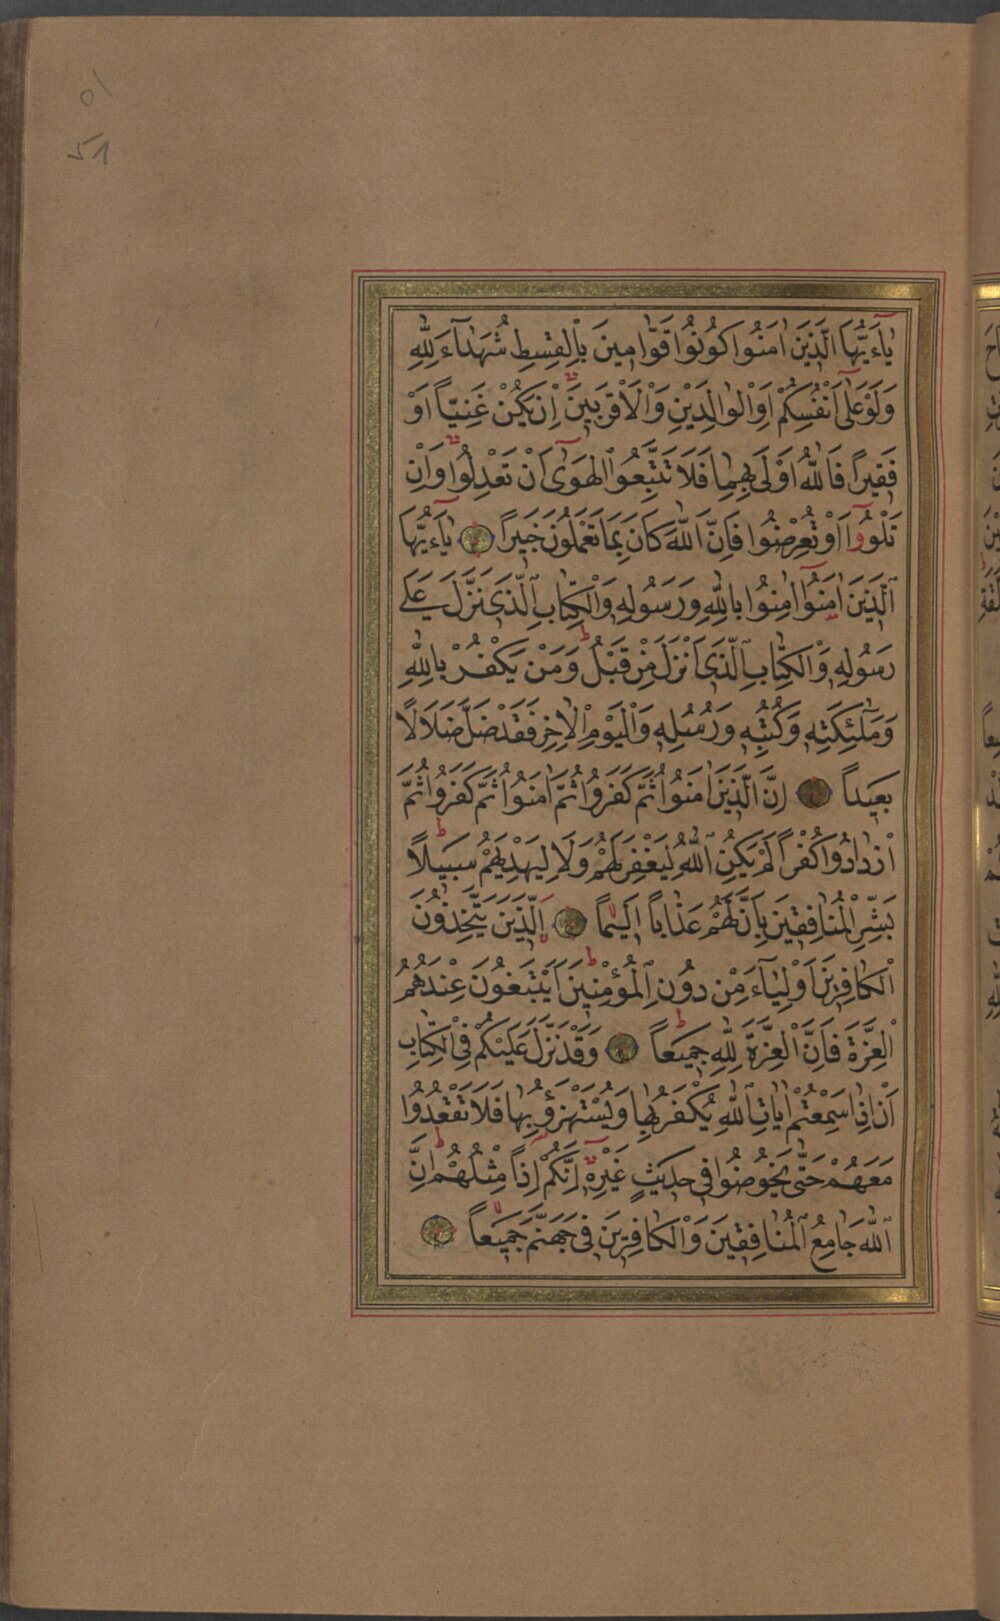 ٥١
51
يَاءَيُّهَا الَّذِينَ اٰمَنُوا كُونُوا قَوَّامِينَ بِالْقِسْطِ شُهَدَاءَ لِلّٰهِ
وَلَوْ عَلٰى اَنْفُسِكُمْ اَوِ الْوَالِدَيْنِ وَالْاَقْرَبِينَ اِنْ يَكُنْ غَنِيّاً اَوْ
فَقِيراً فَاللّٰهُ اَوْلٰى بِهِمَا فَلَا تَتَّبِعُوا الْهَوٰى اَنْ تَعْدِلُوا وَاِنْ
تَلْوُوا اَوْ تُعْرِضُوا فَاِنَّ اللّٰهَ كَانَ بِمَا تَعْمَلُونَ خَبِيراً يَاءَيُّهَا
الَّذِينَ اٰمَنُوا اٰمِنُوا بِاللّٰهِ وَرَسُولِهِ وَالْكِتَابِ الَّذِى نَزَّلَ عَلٰى
رَسُولِهِ وَالْكِتَابِ الَّذِى اَنْزَلَ مِنْ قَبْلُ وَمَنْ يَكْفُرْ بِاللّٰهِ
وَمَلٰئِكَتِهِ وَكُتُبِهِ وَرُسُلِهِ وَالْيَوْمِ الْاٰخِرِ فَقَدْ ضَلَّ ضَلَالاً
بَعِيداً اِنَّ الَّذِينَ اٰمَنُوا ثُمَّ كَفَرُوا ثُمَّ اٰمَنُوا ثُمَّ كَفَرُوا ثُمَّ
ازْدَادُوا كُفْراً لَمْ يَكُنِ اللّٰهُ لِيَغْفِرَ لَهُمْ وَلَا لِيَهْدِيَهُمْ سَبِيلاً
بَشِّرِ الْمُنَافِقِينَ بِاَنَّ لَهُمْ عَذَاباً اَلِيماً اَلَّذِينَ يَتَّخِذُونَ
الْكَافِرِينَ اَوْلِيَاءَ مِنْ دُونِ الْمُؤْمِنِينَ اَيَبْتَغُونَ عِنْدَهُمُ
الْعِزَّةَ فَاِنَّ الْعِزَّةَ لِلّٰهِ جَمِيعاً وَقَدْ نَزَّلَ عَلَيْكُمْ فِى الْكِتَابِ
اَنْ اِذَا سَمِعْتُمْ اٰيَاتِ اللّٰهِ يُكْفَرُ بِهَا وَيُسْتَهْزَؤُ بِهَا فَلَا تَقْعُدُوا
مَعَهُمْ حَتّٰى يَخُوضُوا فِى حَدِيثٍ غَيْرِهِ اِنَّكُمْ اِذاً مِثْلُهُمْ اِنَّ
اللّٰهَ جَامِعُ الْمُنَافِقِينَ وَالْكَافِرِينَ فِى جَهَنَّمَ جَمِيعاً